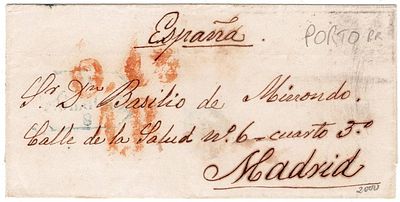 España.
PORTO PR
Sr. Dn. Basilio de Mirondo.
Calle de la Salud nº. 6 - cuarto 3.º
Madrid
2000